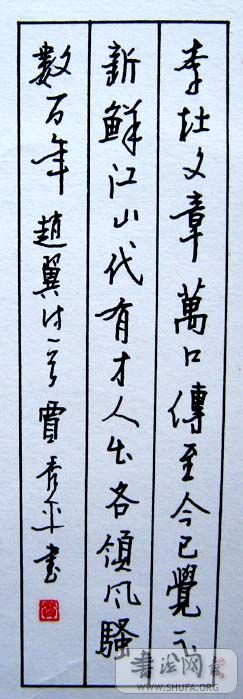 李杜文章萬口傳至今已覺不
新鮮江山代有才人出各領风騷
數百年 趙翼诗一首 賈秀平书
书法网
WWW.SHUFA.ORG